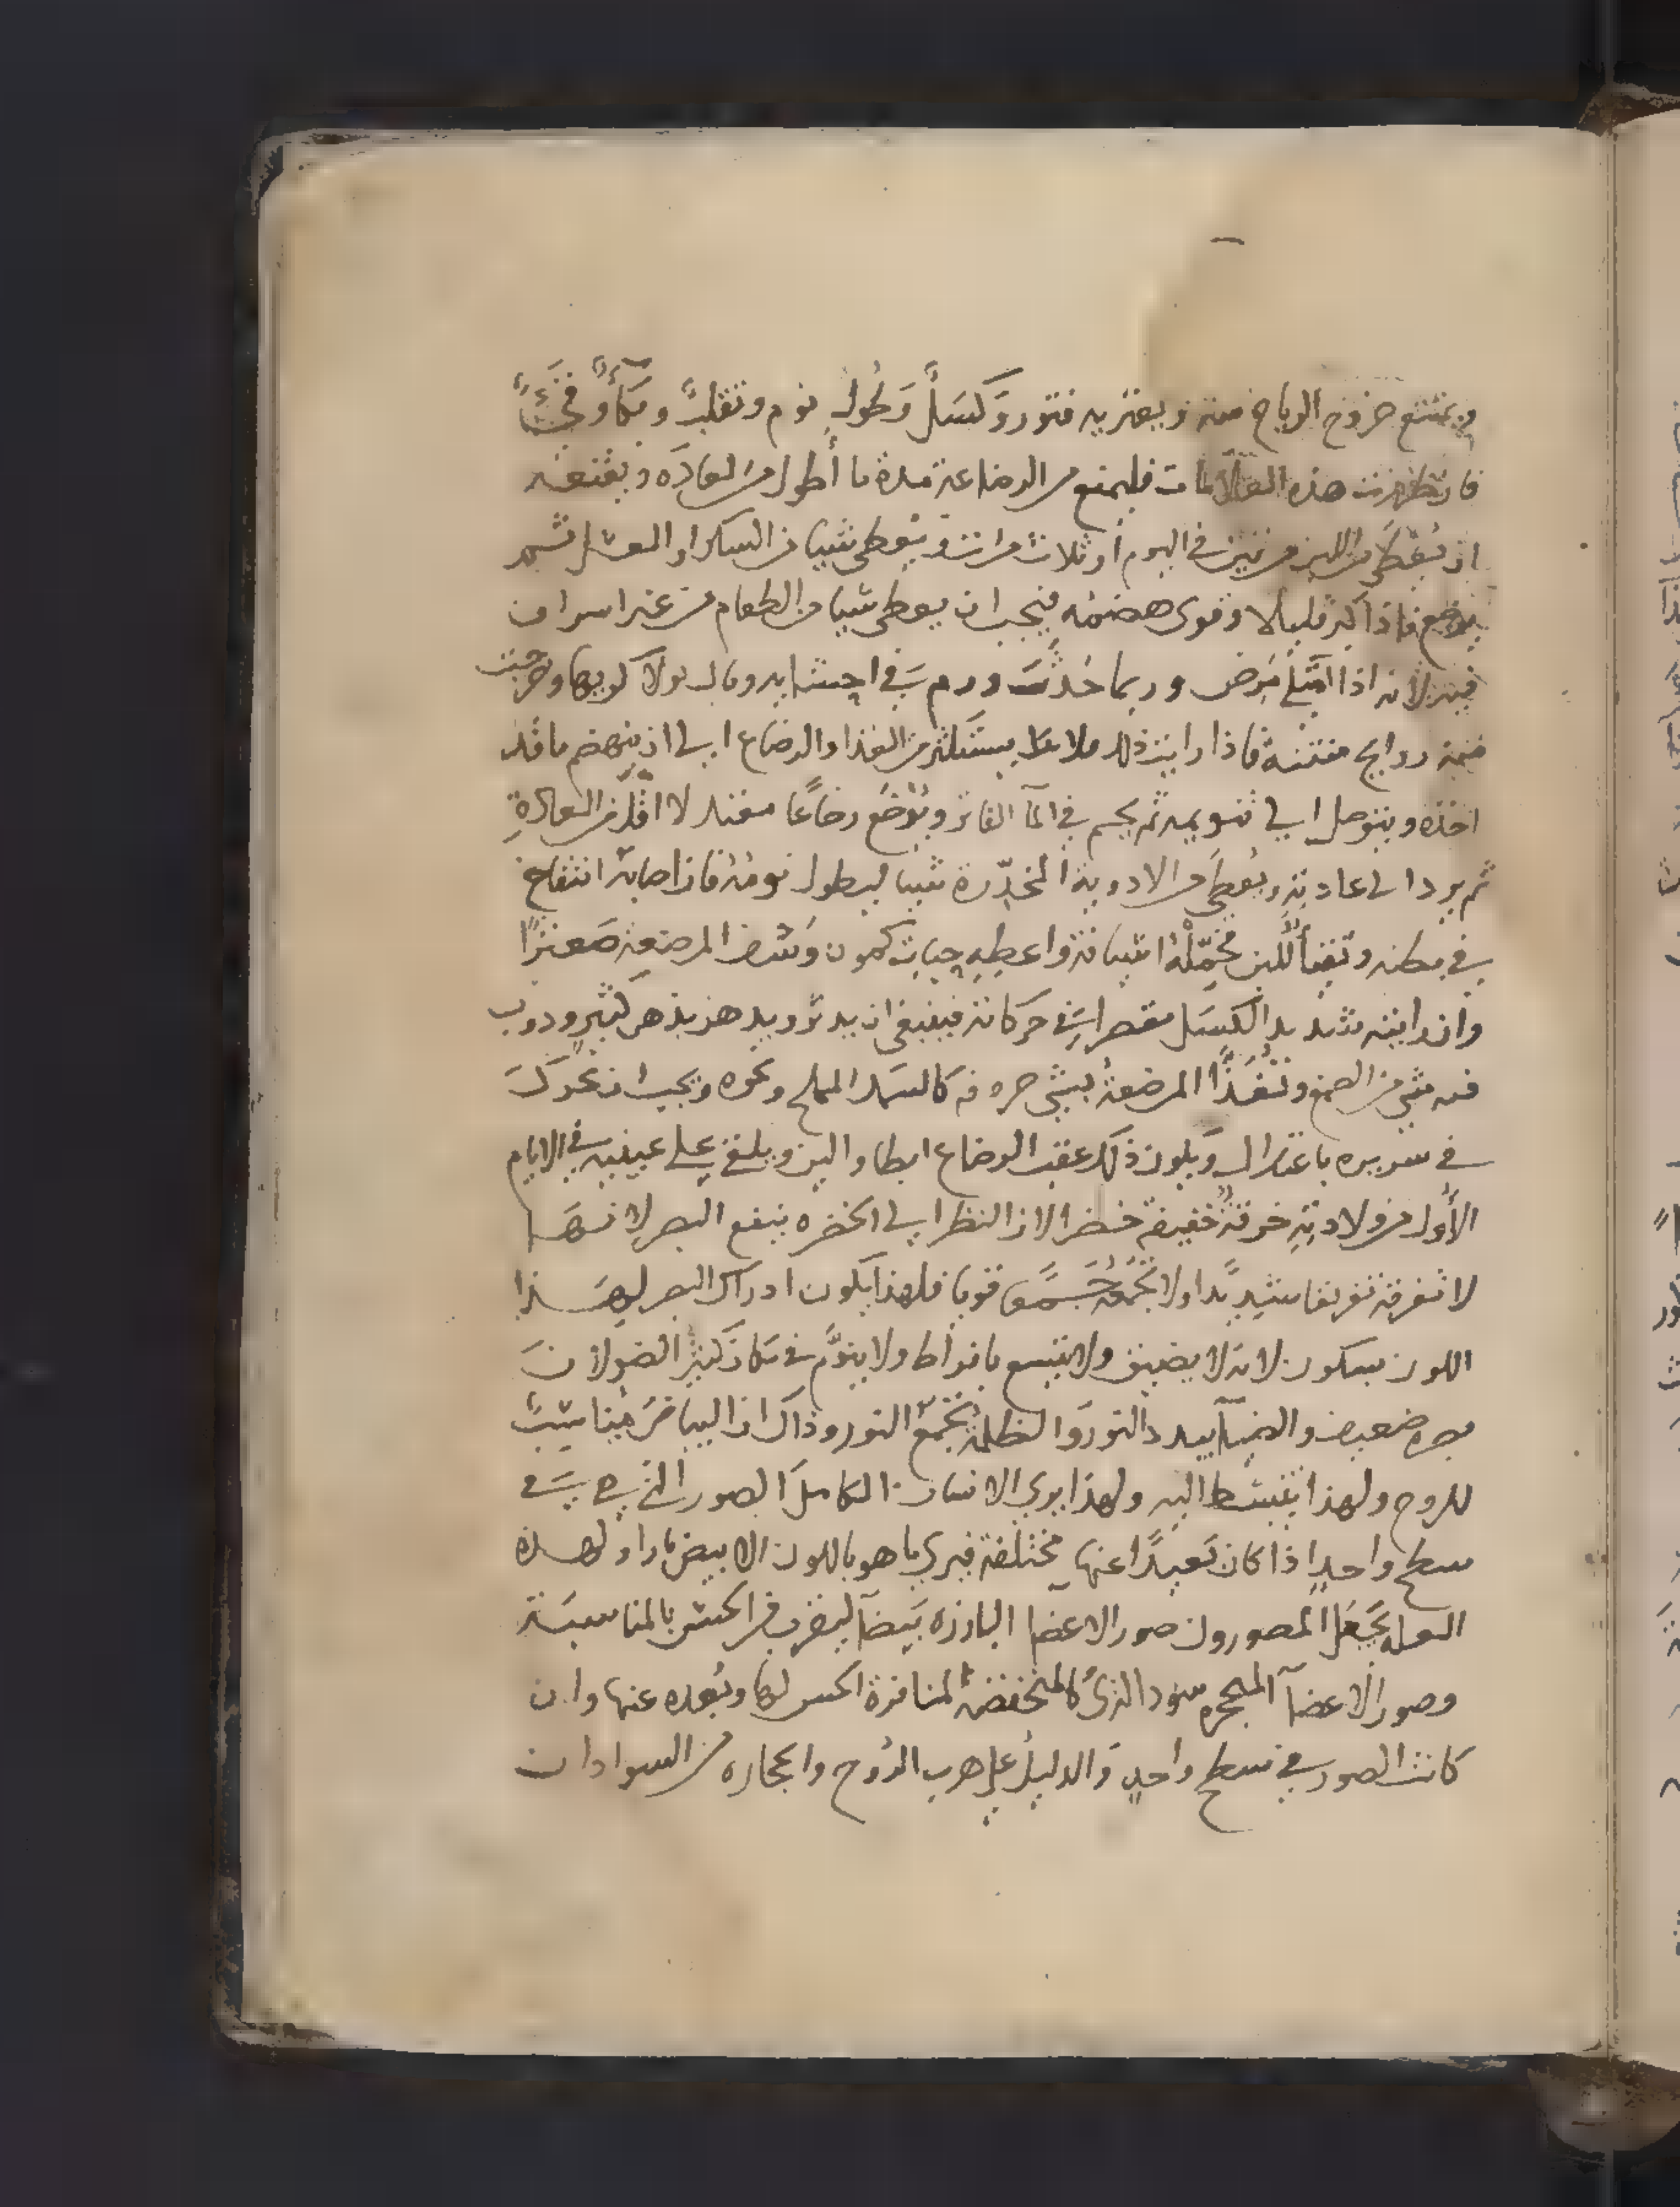 ويمتنع خروج الرياح منه ويعتريه فتور وكسل وطول نوم وتقلب وبكاء وقيء
فان ظهرت هذه العلامات فليمنع من الرضاعة مدة ما أطول من العادة ويقنعه
ان يعطى من اللبن مرتين في اليوم أو ثلاث مرات ويعطى شيا من السكر او العسل ثم
يرضع فاذا كبر قليلا وقوى هضمه فيجب ان يعطى شيا من الطعام من غير اسراف
فيه لانه اذا امتلى مرض وربما حدث ورم في احشايه وبال بولا كريها وخرجت
منه روايح منتنة فاذا رايت ذلك فلا يستكثر من الغذا والرضاع الى ان ينهضم ما قد
اخذه ويتوصل الى تنويمه ثم يحم في الماء الفاتر ويرضع رضاعا معتدلا اقل من العادة
ثم يرد الى عادته ويعطى من الادوية المخدرة شيا ليطول نومه فاذا صابه انتفاخ
في بطنه وتقيأ اللبن فحمله اشيافة واعطيه حبات كمون وتسف المرضعة صعترا
وان رايته شديد الكسل مقصرا في حركاته فينبغي ان يدثر ويدهن بدهن كثير ودوب
فيه شي من الصمغ وتغذا المرضعة بشي حريف كالسمك المملح ونحوه ويجب ان يحرك
في سريره باعتدال ويكون ذلك عقب الرضاع ابطا والين ويلقى على عينيه في الايام
الأول من ولادته خرقة خفيفة خضرا لان النظر الى الخضره ينفع البصر لانها
لا تفرقه تفريقا شديدا ولا تجمعه جمعا قويا فلهذا يكون ادراك البصر لهذا
اللون بسكون لانه لا يضيق ولا يتسع بافراط ولا ينوم في مكان كثير الضو لان
بصره ضعيف والضيآ يبدد النور والظلمة تجمع النور وذاك ان البياض مناسب
للروح ولهذا ينبسط اليه ولهذا يري الانسان الكامل الصور التي هي في
سطح واحد اذا كان بعيدا عنها مختلفة فيري ما هو باللون الابيض بارزا ولهذه
العله يجعل المصورون صور الاعضا البارزه بيضآ ليقرب من الحس بالمناسبة
وصور الاعضآ سود التري كالمنخفضة لمنافرة الحس لها وبعده عنها وان
كانت الصور في سطح واحد والدليل على هرب الروح وانحجازه من السواد ان